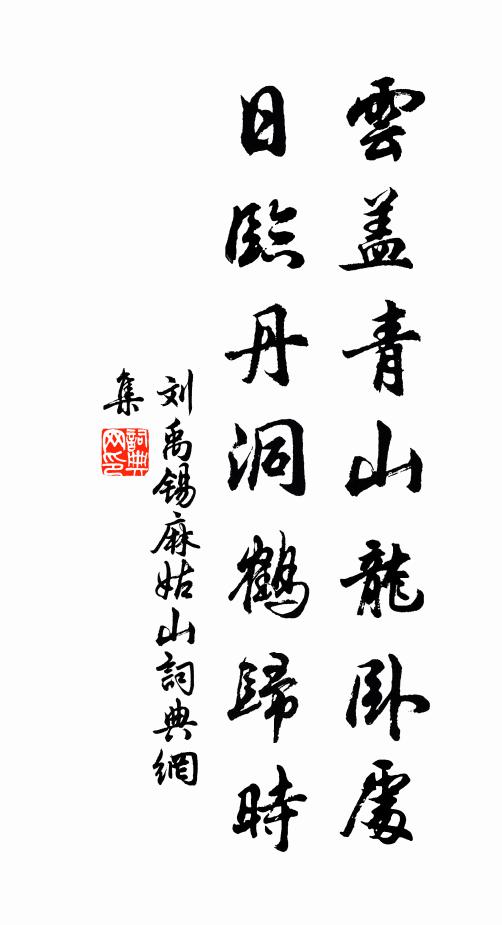 雲盖青山龍卧處
日臨丹洞鶴歸時
刘禹锡麻姑山詞典網
集
詞典网印